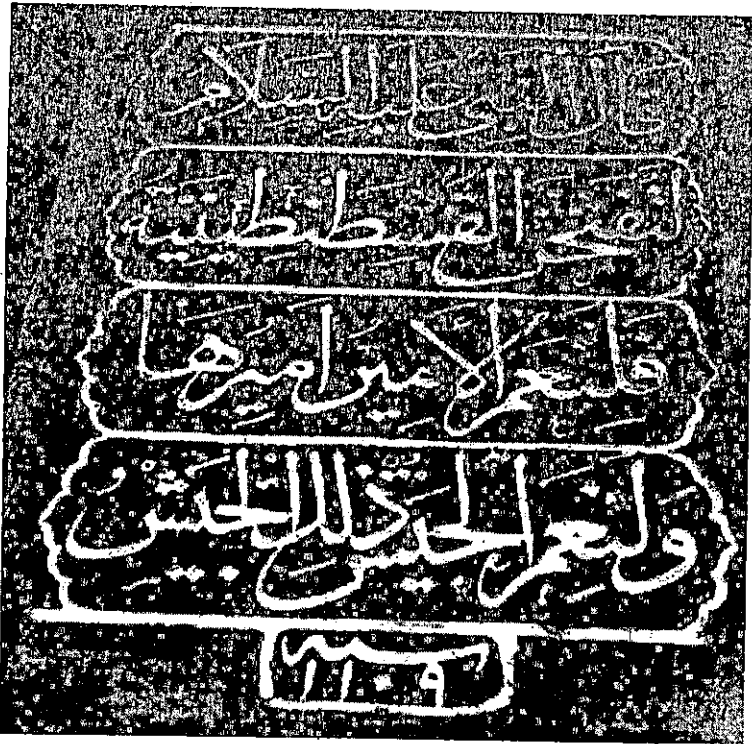 قال النبي عليه السلام
لتفتحن القسطنطينية
فلنعم الامير اميرها
ولنعم الجيش ذلك الجيش
سنه
١١٠٩